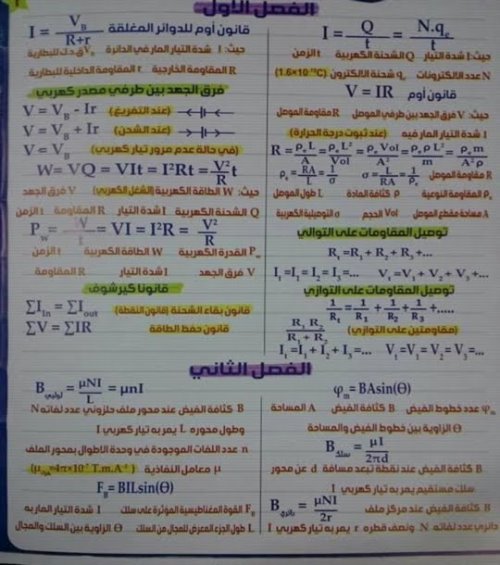 الفصل الأول
I = Q/t = N.qe/t
حيث: I شدة التيار Q الشحنة الكهربية t الزمن
N عدد الالكترونات qe شحنة الالكترون (1.6×10⁻¹⁹C)
قانون أوم V = IR
حيث: V فرق الجهد بين طرفي الموصل R مقاومة الموصل
I شدة التيار المار فيه (عند ثبوت درجة الحرارة)
R = ρeL/A = ρeL²/Vol = ρeVol/A² = ρeρL²/m = ρem/A²ρ
R مقاومة الموصل ρe = RA/L = 1/σ σ = L/RA = 1/ρe
ρe المقاومة النوعية ρ كثافة المادة L طول الموصل
A مساحة مقطع الموصل Vol الحجم σ التوصيلية الكهربية
توصيل المقاومات على التوالي
Rt = R1 + R2 + R3 + ...
It = I1 = I2 = I3 = ... Vt = V1 + V2 + V3 + ...
توصيل المقاومات على التوازي
1/Rt = 1/R1 + 1/R2 + 1/R3 + .....
(مقاومتين على التوازي) R1 R2/R1 + R2
It = I1 + I2 + I3 = ... Vt = V1 = V2 = V3 = ...
قانون أوم للدوائر المغلقة I = VB/R+r
حيث: I شدة التيار المار في الدائرة VB ق.د.ك للبطارية
R المقاومة الخارجية r المقاومة الداخلية للبطارية
فرق الجهد بين طرفي مصدر كهربي
V = VB - Ir (عند التفريغ)
V = VB + Ir (عند الشحن)
V = VB (في حالة عدم مرور تيار كهربي)
W = VQ = VIt = I²Rt = V²/R t
حيث: W الطاقة الكهربية (الشغل الكهربي) V فرق الجهد
Q الشحنة الكهربية I شدة التيار R المقاومة t الزمن
Pw = W/t = VI = I²R = V²/R
Pw القدرة الكهربية W الطاقة الكهربية t الزمن
V فرق الجهد I شدة التيار R المقاومة
قانونا كيرشوف
∑Iin = ∑Iout قانون بقاء الشحنة (قانون النقطة)
∑V = ∑IR قانون حفظ الطاقة
الفصل الثاني
φm = BAsin(Θ)
φm عدد خطوط الفيض B كثافة الفيض A المساحة
Θ الزاوية بين خطوط الفيض والمساحة
Bسلك = μI/2πd
B كثافة الفيض عند نقطة تبعد مسافة d عن محور
سلك مستقيم يمر به تيار كهربي I
Bدائري = μNI/2r B كثافة الفيض عند مركز ملف
دائري عدد لفاته N ونصف قطره r يمر به تيار كهربي I
Bلولبي = μNI/L = μnI
B كثافة الفيض عند محور ملف حلزوني عدد لفاته N
وطول محوره L يمر به تيار كهربي I
n عدد اللفات الموجودة في وحدة الأطوال بمحور الملف
μ معامل النفاذية (μهواء=4π×10⁻⁷ T.m.A⁻¹)
FB = BILsin(Θ)
FB القوة المغناطيسية المؤثرة على سلك I شدة التيار المار به
L طول الجزء المعرض للمجال من السلك Θ الزاوية بين السلك والمجال